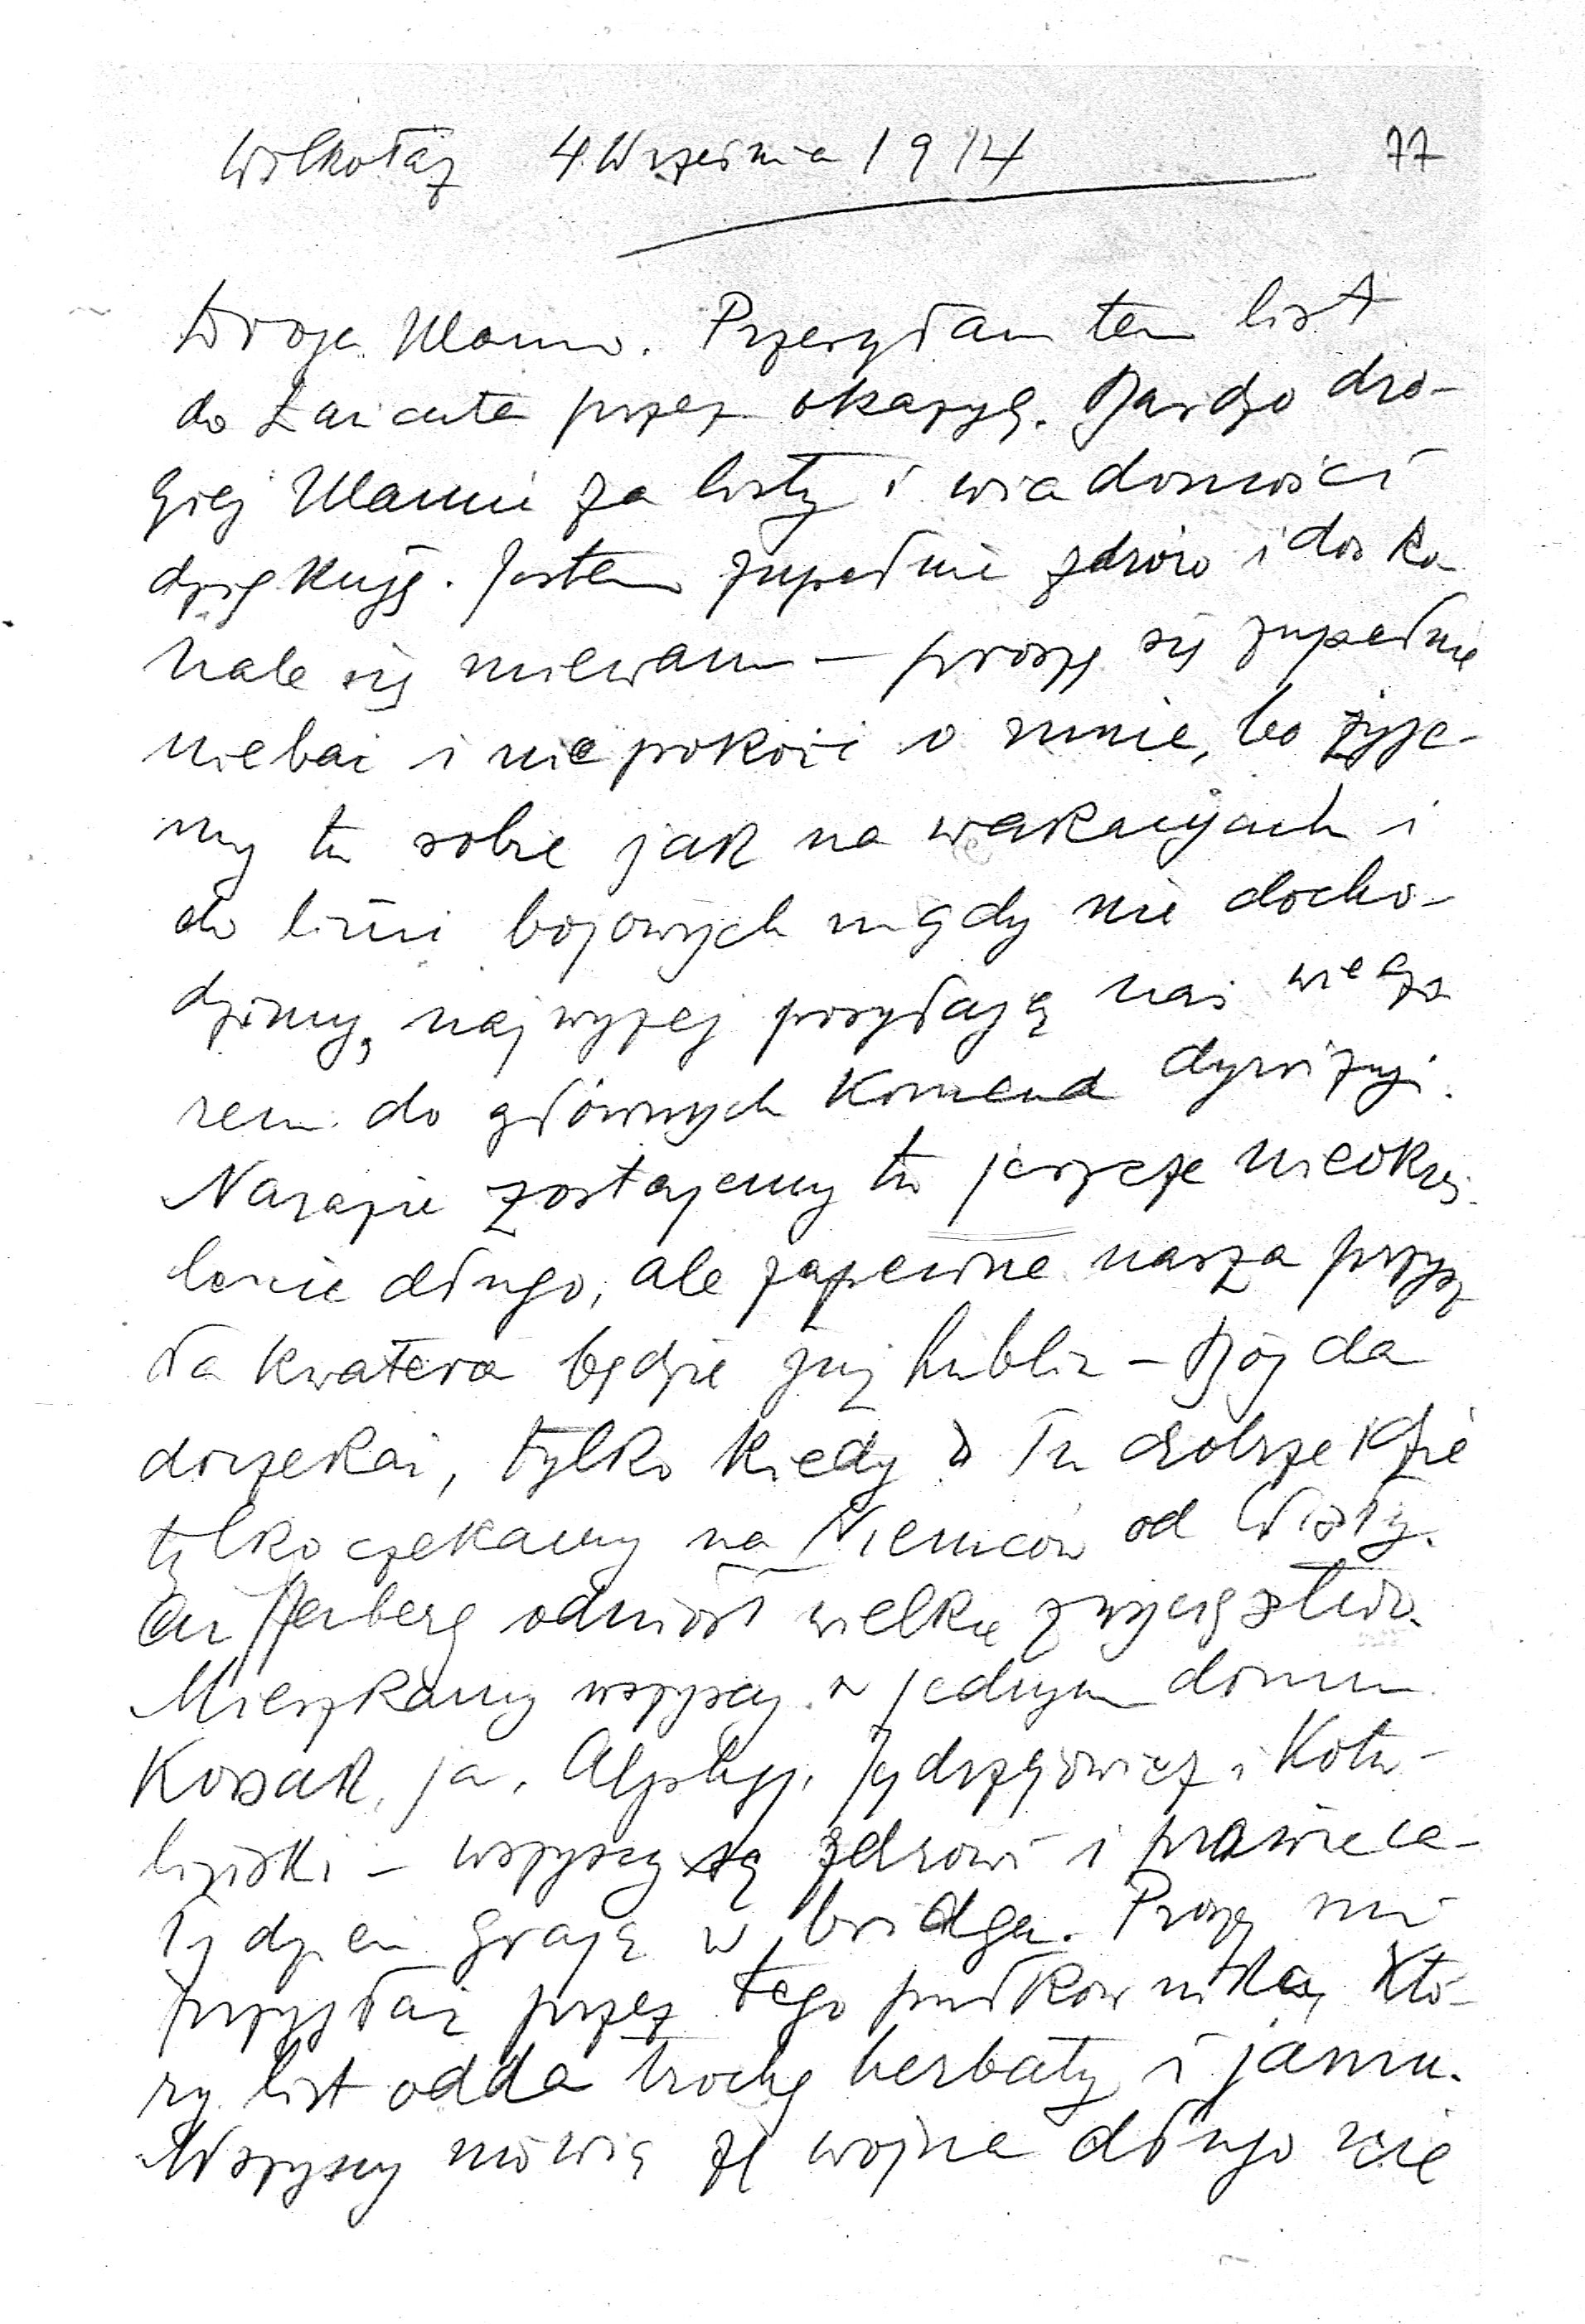 Wilkołaz 4 Września 1914 77
Droga Mamo. Przesyłam ten list
do Łańcuta przez okazyę. Bardzo dro-
giej Mamie za listy i wiadomości
dziękuję. Jestem zupełnie zdrów i dosko
nale się miewam – proszę się zupełnie
nie bać i nie pokoić o mnie, bo żyje-
my tu sobie jak na wakacyjach i
do linii bojowych nigdy nie docho-
dzimy, najwyżej posyłają nas wieczo
rem do głównych Komend dywizyi.
Narazie zostajemy tu jeszcze nieokreś-
lenie długo, ale zapewne nasza przysz
ła kwatera będzie już Lublin – Bóg da
doczekać, tylko kiedy? Tu dobrze idzie
tylko czekamy na Niemców od Wisły.
Auffenberg odniósł wielkie zwycięstwo.
Mieszkamy wszyscy w jednym domu
Kossak, ja, Jędrzejowicz i Kotu-
liński – wszyscy są zdrowi i prawie ca-
ły dzień grają w bridga. Proszę mi
przysłać przez tego pułkownika, któ-
ry list odda trochę herbaty i jamu.
Wszyscy mówią że wojna długo nie